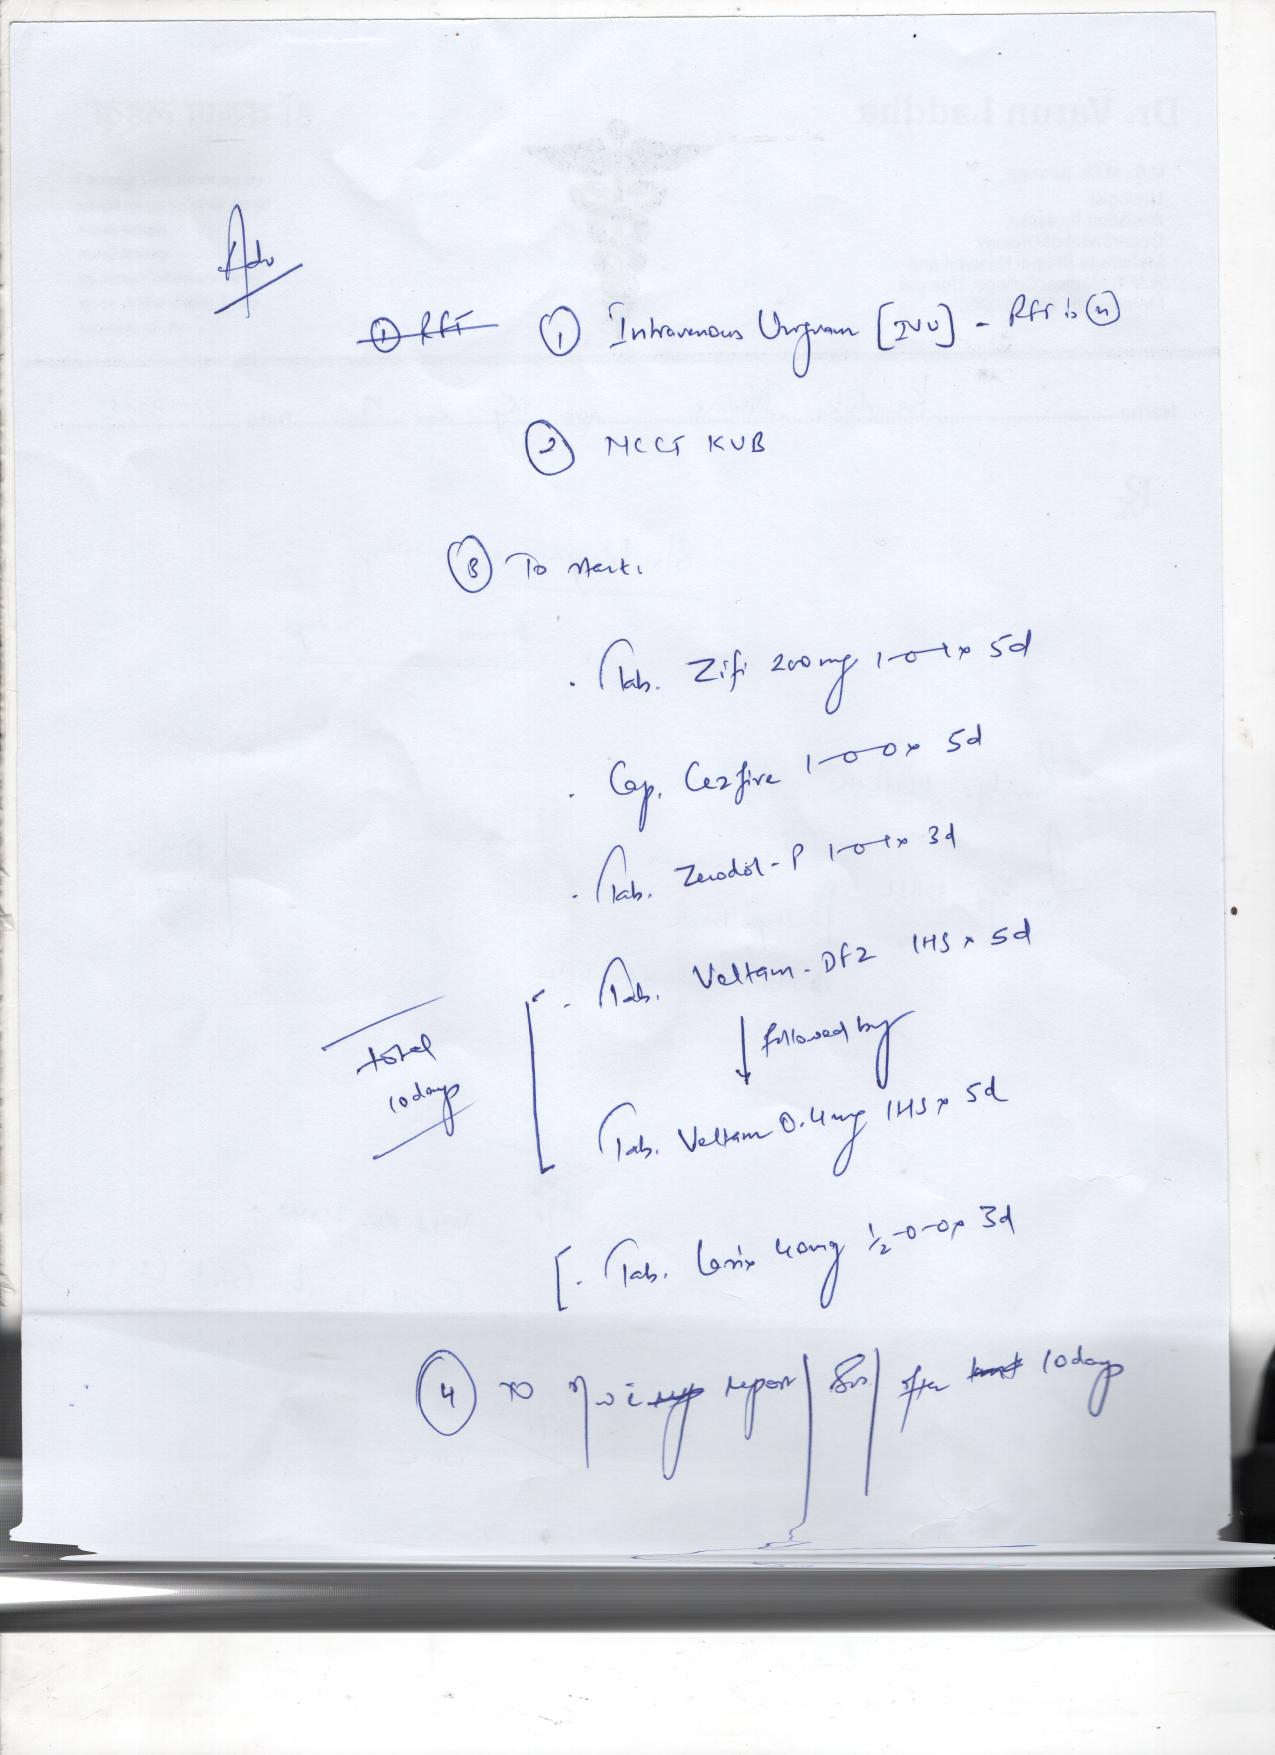 Adv
① RFT ① Intravenous Urogram [IVU] - RFT is (n)
② NCCT KUB
③ To start:
. Tab. Zifi 200mg 1-0-1 x 5d
. Cap. Cezfire 1-0-0 x 5d
. Tab. Zerodol-P 1-0-1 x 3d
. Tab. Veltam-DFZ 1HS x 5d
↓ followed by
total
10 days
Tab. Veltam 0.4mg 1HS x 5d
. Tab. Lasix 40mg ½-0-0 x 3d
④ To report / SOS / after 10 days
Dr. Varun Laddha
Rx